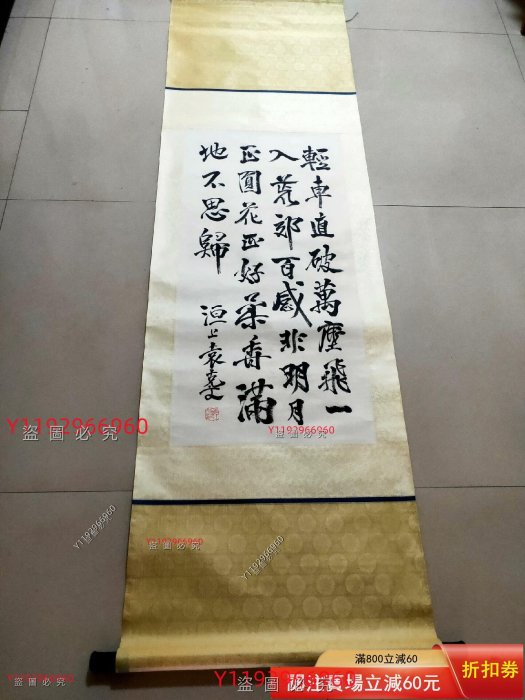 輕車直破萬塵飛一
入荒郊百感非明月
正圓花正好柔香滿
地不思歸
洹上袁克文
Y1192966960
盜圖必究
Y1192966960
盜圖必究
Y1192966960
盜圖必究
Y1192966960
盜圖必究
Y1192966960
盜圖必究
Y1192966960
盜圖必究
盜圖必究
滿800立減60
立減60元
折扣券